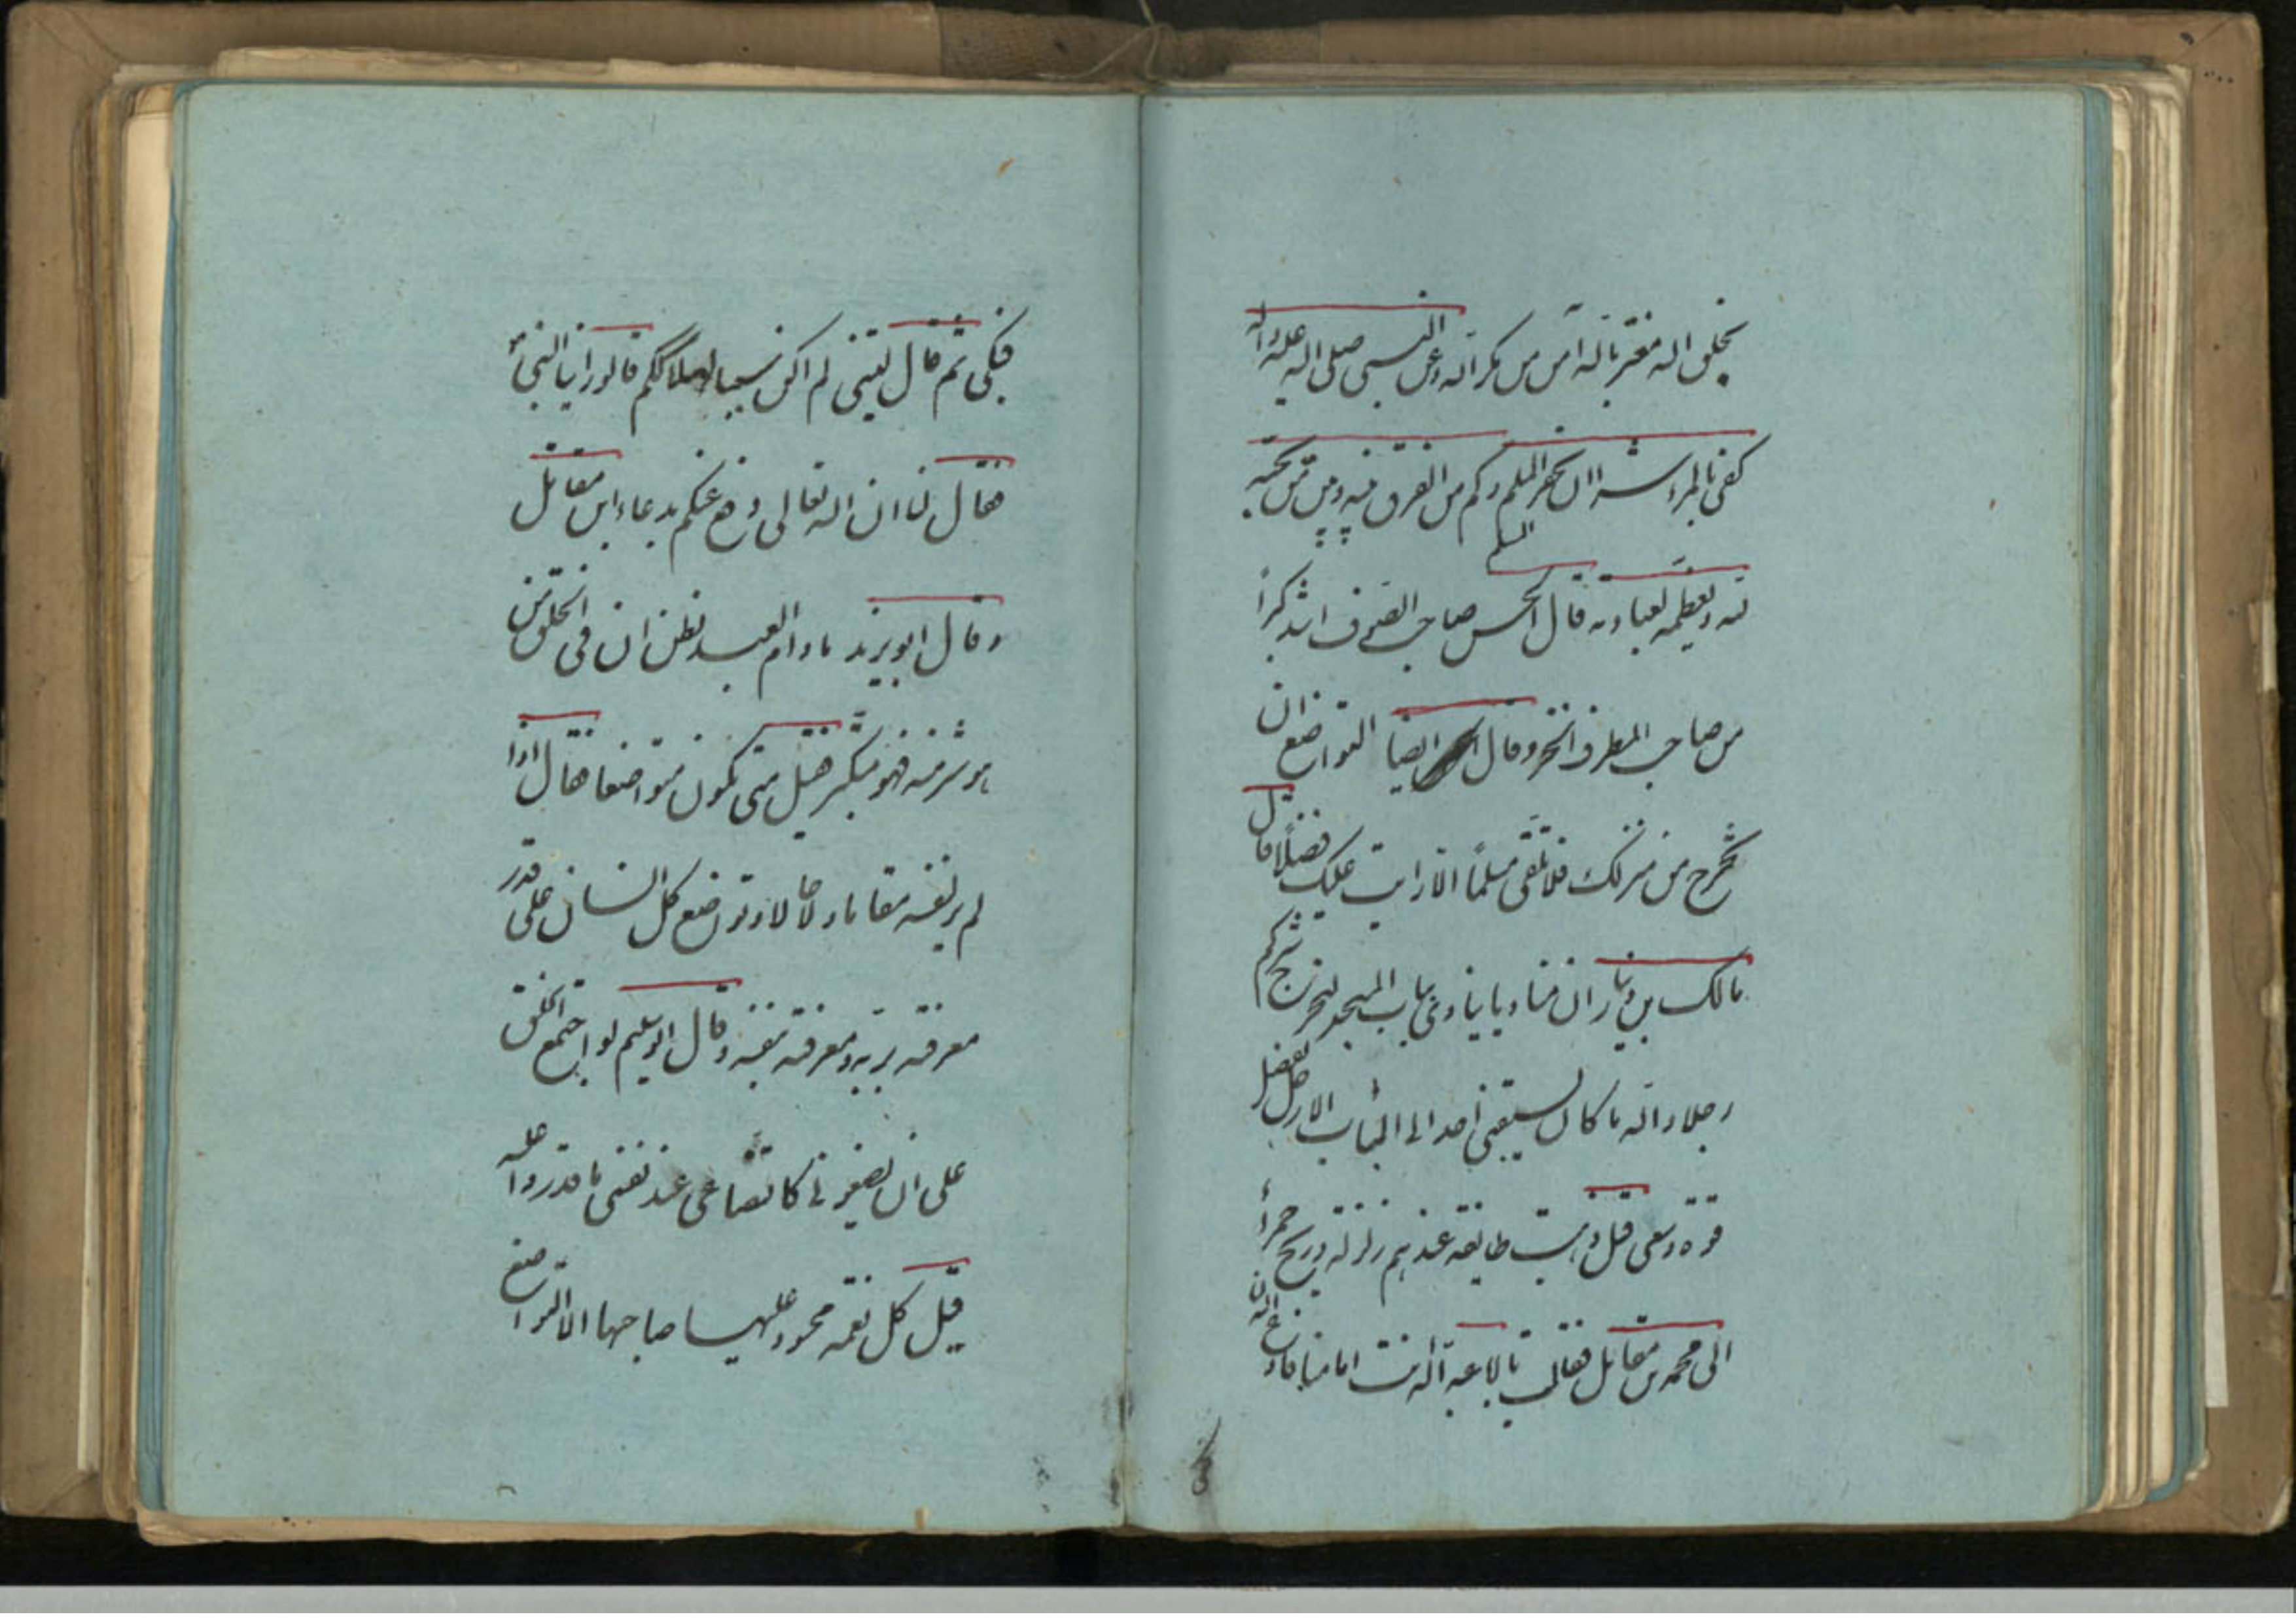 بخلق الله مغتر بالله آمن من مكر الله وعن النبي صلى الله عليه وآله
كفى بالمرء شرا ان يحقر المسلم وكم من الفرق بينه وبين من يحبه
لله ويعظمه لعبادته قال الحسن صاحب الصوف اشد كبراً
من صاحب المطرف الخز وقال ايضا التواضع ان
تخرج من منزلك فلا تلقى مسلمًا الا رايت عليك فضلًا قال
مالك بن دينار ان مناديا ينادى بباب المسجد ليخرج شركم
رجلا والله ما كان يسبقنى احد الى الباب الا رجل بفضل
قوة وسعى قيل وهبت طايفة عندهم زلزلة وريح حمرأ
الى محمد بن مقاتل فقالت يا ابا عبد الله انت امامنا فادع الله
فبكى ثم قال ليتنى لم اكن سببا لهلاككم قالوا راينا النبي
فقال لنا ان الله تعالى دفع عنكم بدعاء ابن مقاتل
وقال ابو يزيد ما دام العبد يظن ان فى الخلق من
هو شر منه فهو متكبر فقيل متى يكون متواضعا فقال اذا
لم ير لنفسه مقاما ولا حالا وتواضع كل انسان على قدر
معرفته بربه ومعرفته بنفسه وقال ابو سليم لو اجتمع الخلق
على ان يصغرونى كاتضاعى عند نفسى ما قدروا عليه
قيل كل نعمة محسود عليها صاحبها الا التواضع